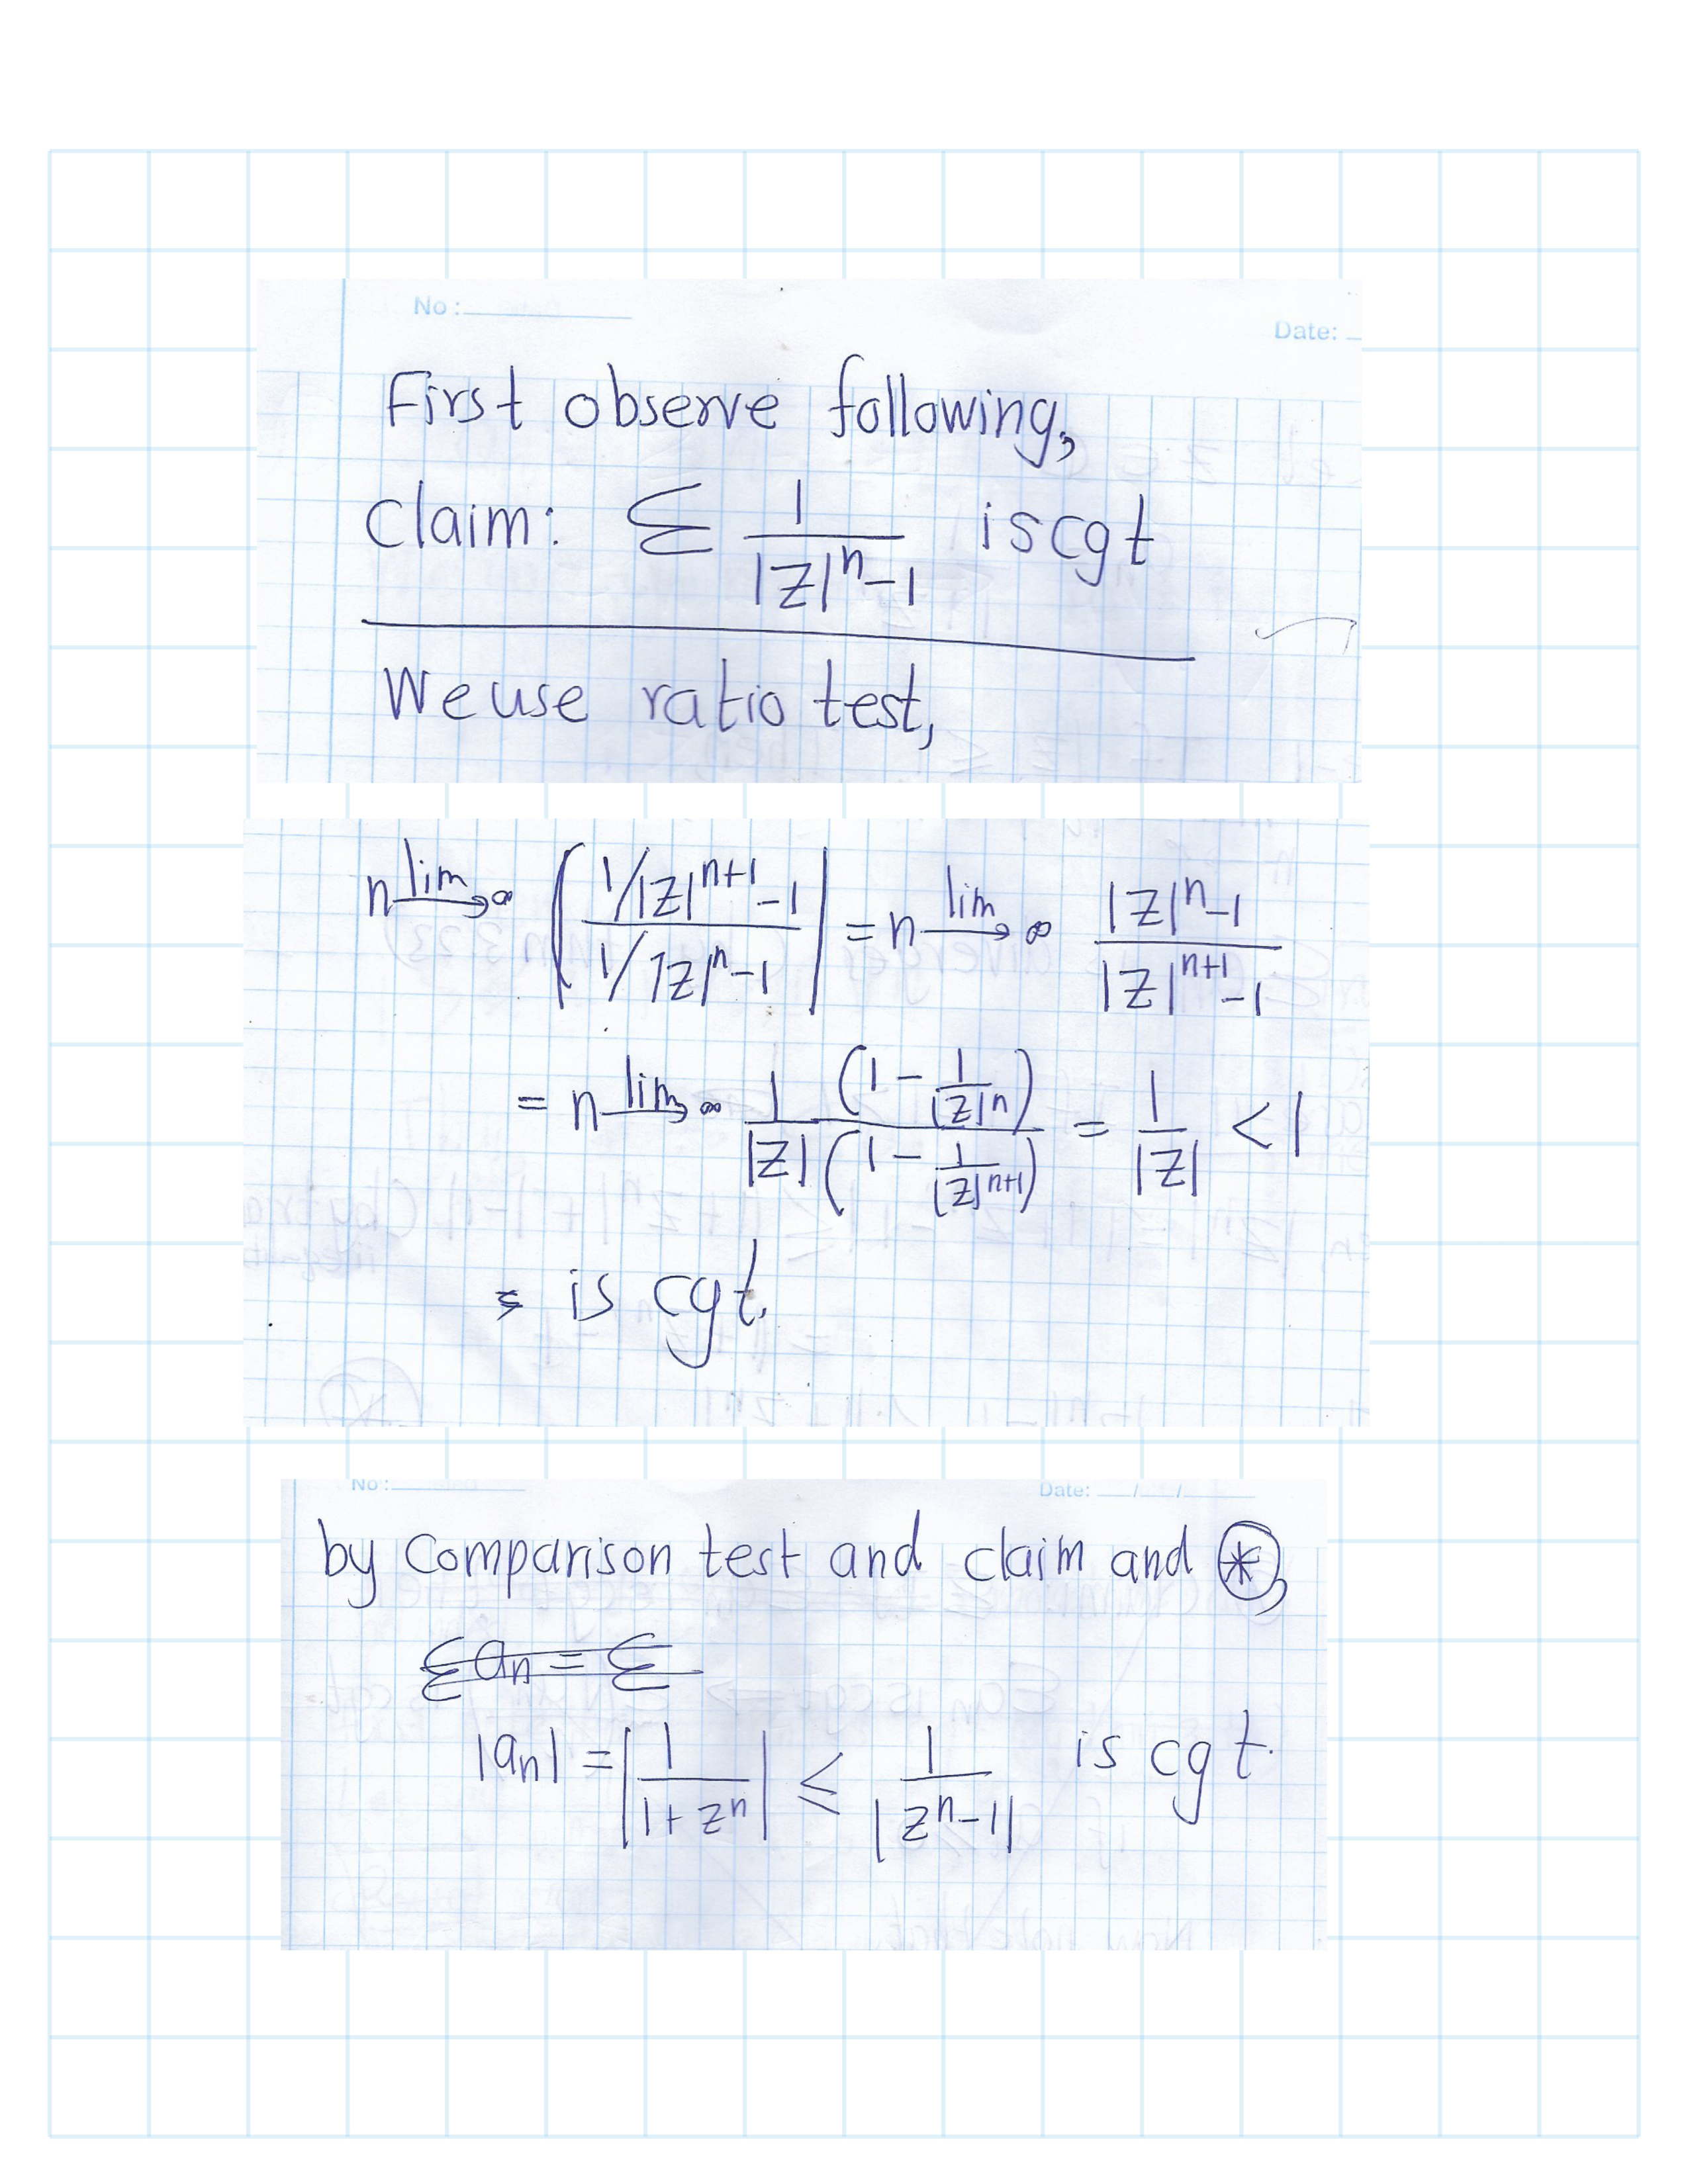 No :
Date:
First observe following,
Claim: Σ 1/(|z|^n - 1) is cgt
We use ratio test,
n lim→∞ | (1/|z|^{n+1} - 1) / (1/|z|^n - 1) | = n lim→∞ (|z|^n - 1)/(|z|^{n+1} - 1)
= n lim→∞ (1/|z|) (1 - 1/|z|^n)/(1 - 1/|z|^{n+1}) = 1/|z| < 1
is cgt.
No :
Date: __/__/__
by comparison test and claim and ⊛,
Σ an = Σ
|an| = |1/(1 + z^n)| ≤ 1/|z^n - 1| is cgt.